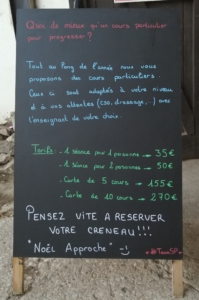 Quoi de mieux qu'un cours particulier
pour progresser ?
Tout au long de l'année nous vous
proposons des cours particuliers.
Ceux ci sont adaptés à votre niveau
et à vos attentes (cso, dressage,...) avec
l'enseignant de votre choix.
Tarifs: . 1 séance pour 1 personne → 35€
. 1 séance pour 2 personnes → 50€
. Carte de 5 cours → 155€
. Carte de 10 cours → 270€
PENSEZ VITE A RESERVER
VOTRE CRENEAU!!!
"Noël Approche" :-)
#TeamSP